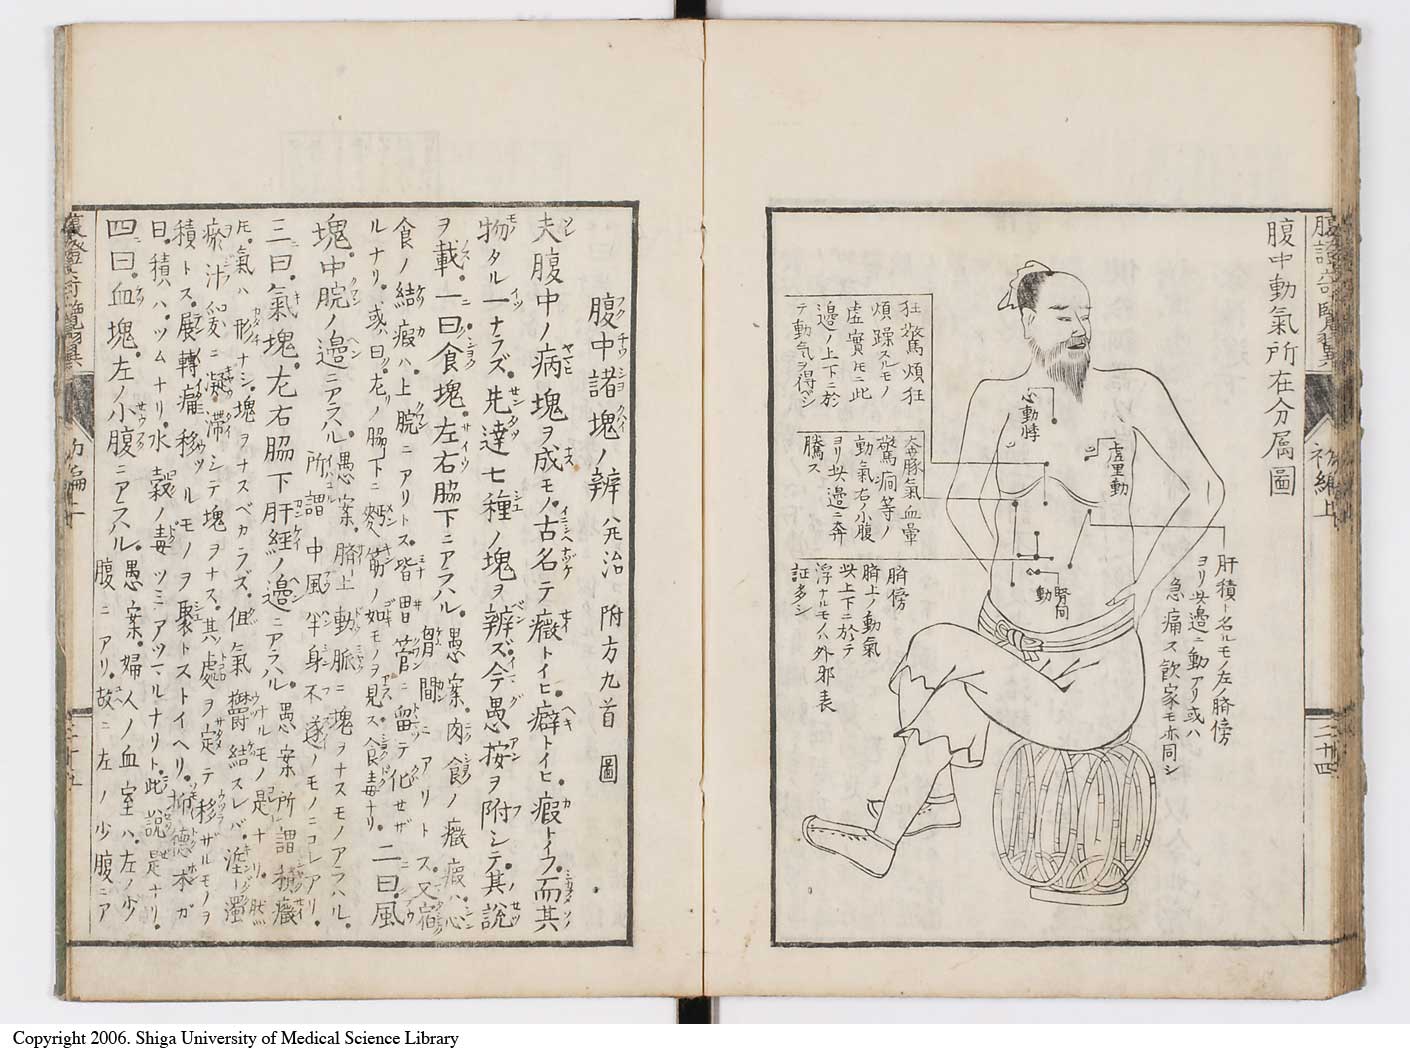 腹證奇覽翼
初編上
二十四
腹中動氣所在分属圖
心動悸
虚里動
腎間
動
狂驚煩狂
煩躁スルモノ
虚實トモニ此
邊ノ上下ニ於
テ動気ヲ得ベシ
奔豚氣血暈
驚癇等ノ
動氣右ノ小腹
ヨリ此邊ニ奔
騰ス
臍傍
臍上ノ動氣
此上下ニ於テ
浮ナルモノハ外邪表
証多シ
肝積ト名ルモノ左ノ臍傍
ヨリ此邊ニ動アリ或ハ
急痛ス飲家モ亦同シ
腹中諸塊ノ辨 附方九首 圖
夫腹中ノ病塊ヲ成モノ古名テ癥トイヒ癖トイヒ瘕トイフ而其
物タル一ナラズ先達七種ノ塊ヲ辨ズ今愚按ヲ附シテ其説
ヲ載一曰食塊左右脇下ニアラハル愚案肉食ノ癥瘕ハ心
食ノ結瘕ハ上脘ニアリトス皆胃管ニ留テ化セザ
ルナリ或曰左ノ脇下ニ麪筋ノ如モノヲ見ス食毒ナリ二曰風
塊中脘ノ邊ニアラハル愚案臍上動脈ニ塊ヲナスモノアラハル
所謂中風半身不遂ノモノニコレアリ
三曰氣塊左右脇下肝經ノ邊ニアラハル愚案所謂積癥
ナルモノ是ナリ然
トモ氣ハ形ナシ塊ヲナスベカラズ但氣欝結スレバ濁
瘀汁爰ニ凝滞シテ塊ヲナス其處ヲ定テ移ザルモノヲ
積トス展轉移ルモノヲ聚トストイヘリ
曰積ハツムナリ水穀ノ毒ツミアツマルナリト此説是ナリ
四曰血塊左ノ小腹ニアラハル愚案婦人ノ血室ハ左ノ少
腹ニアリ故ニ左ノ少腹ニア
腹證奇覽翼
初編上